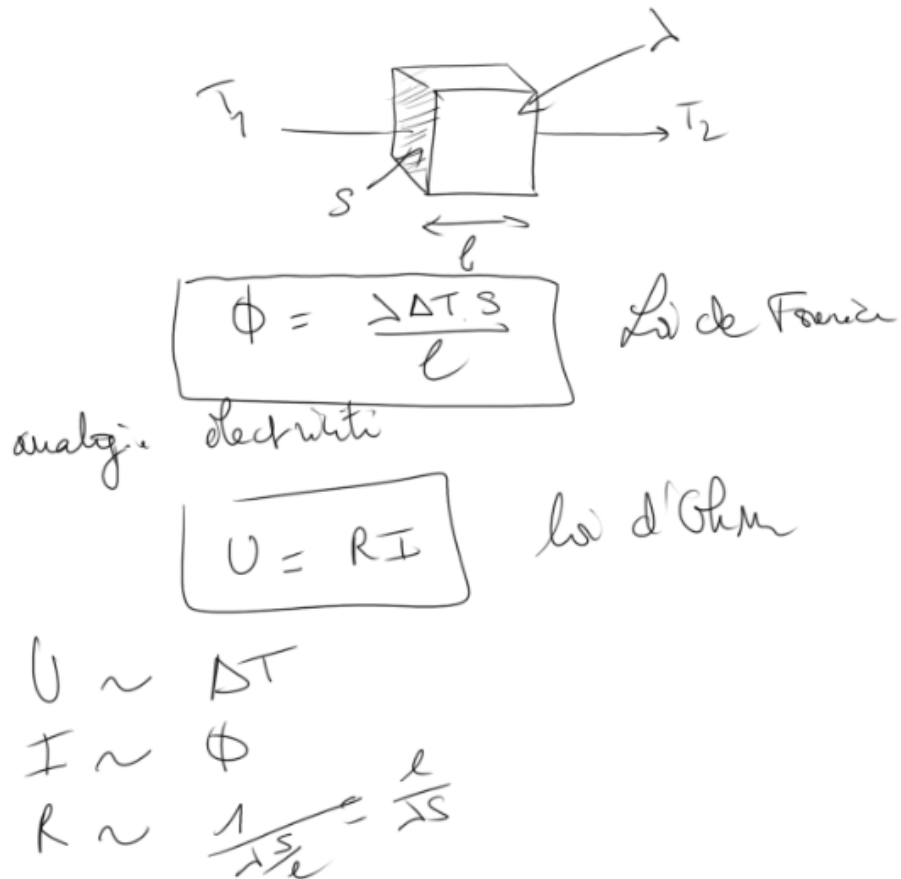 λ
T₁
T₂
S
l
ϕ = λΔT.S / l
Loi de Fourier
analogie électricité
U = RI
loi d'Ohm
U ~ ΔT
I ~ ϕ
R ~ 1 / (λ S/e) = e / λS